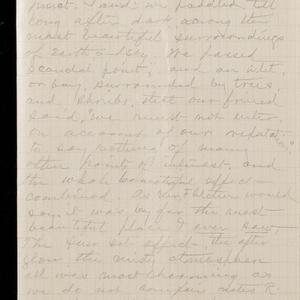 and we paddled till
long after dark among the
most beautiful surroundings
of Earth and sky. We passed
Scandal point, and an inlet,
or bay, surrounded by trees,
and shrubs, that our friend
said, "we must not enter,
on account of our reputations"
to say nothing of many
other points of interest, and
the whole beautiful effect
combined. As Mr. Fletcher would
say it was by far the most
beautiful place I ever saw;
The Sun set effect, the after
glow the misty atmosphere
all was most charming as
we do not